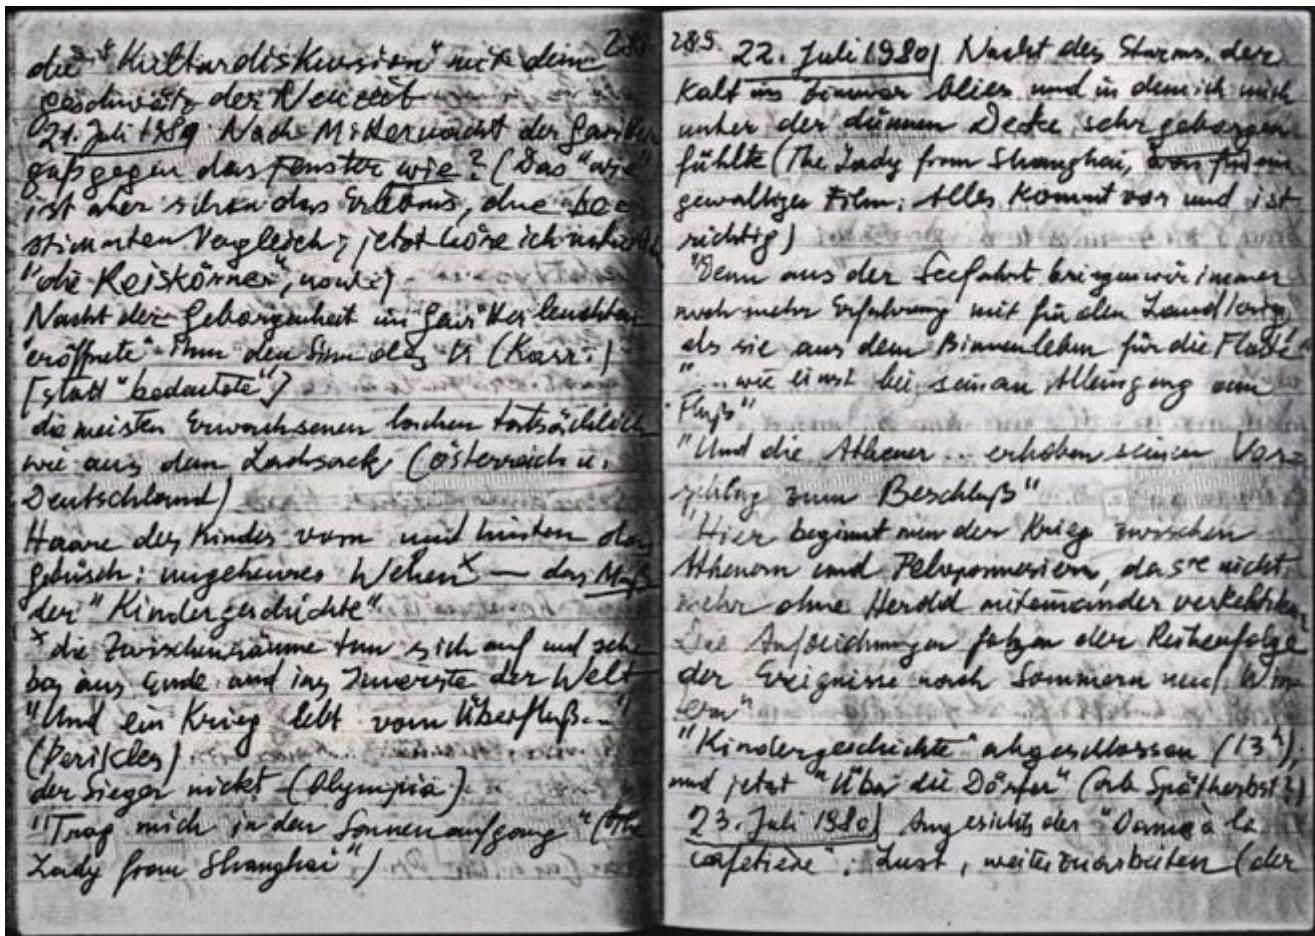 die "Kulturdiskussion" mit dem 288
Geschwätz der Neuzeit
21. Juli 1980 Nach Mitternacht der
gegen das Fenster wie? (Das "wie"
ist aber schon das Erlebnis, ohne be-
stimmten Vergleich; jetzt höre ich
"die Reiskörner",
Nacht der Geborgenheit im
"eröffnete" ihm den Sinn des
[statt "bedeutete"]
die meisten Erwachsenen lachen tatsächlich
wie aus dem Lachsack (Österreich u.
Deutschland)
Haare des Kindes vorn und hinten das
Gebüsch: ungeheures Wehen x — das Maß
der "Kindergeschichte"
x die Zwischenräume tun sich auf und
bis ans Ende und ins Innerste der Welt
"Und ein Krieg lebt vom Überfluß..."
(Perikles)
der Sieger nickt (Olympia)
"Trag mich in den Sonnenaufgang" (The
Lady from Shanghai")
289. 22. Juli 1980 Nacht des Sturms, der
kalt ins Zimmer blies und in dem ich mich
unter der dünnen Decke sehr geborgen
fühlte (The Lady from Shanghai, was für ein
gewaltiger Film: Alles kommt vor und ist
richtig)
"Denn aus der Seefahrt bringen wir immer
noch mehr Erfahrung mit für den Landkrieg
als sie aus dem Binnenleben für die Flotte"
"... wie einst bei seinem Alleingang am
Fluß"
"Und die Athener ... erhoben seinen Vor-
schlag zum Beschluß"
"Hier beginnt nun der Krieg zwischen
Athenern und Peloponnesiern, da sie nicht
mehr ohne Herold miteinander verkehrten
Die Aufzeichnungen folgen der Reihenfolge
der Ereignisse nach Sommern und Win-
tern"
"Kindergeschichte" abgeschlossen (13h),
und jetzt "Über die Dörfer" (ab Spätherbst?)
23. Juli 1980 Angesichts der "Dame à la
cafetière": Lust, weiterzuarbeiten (der